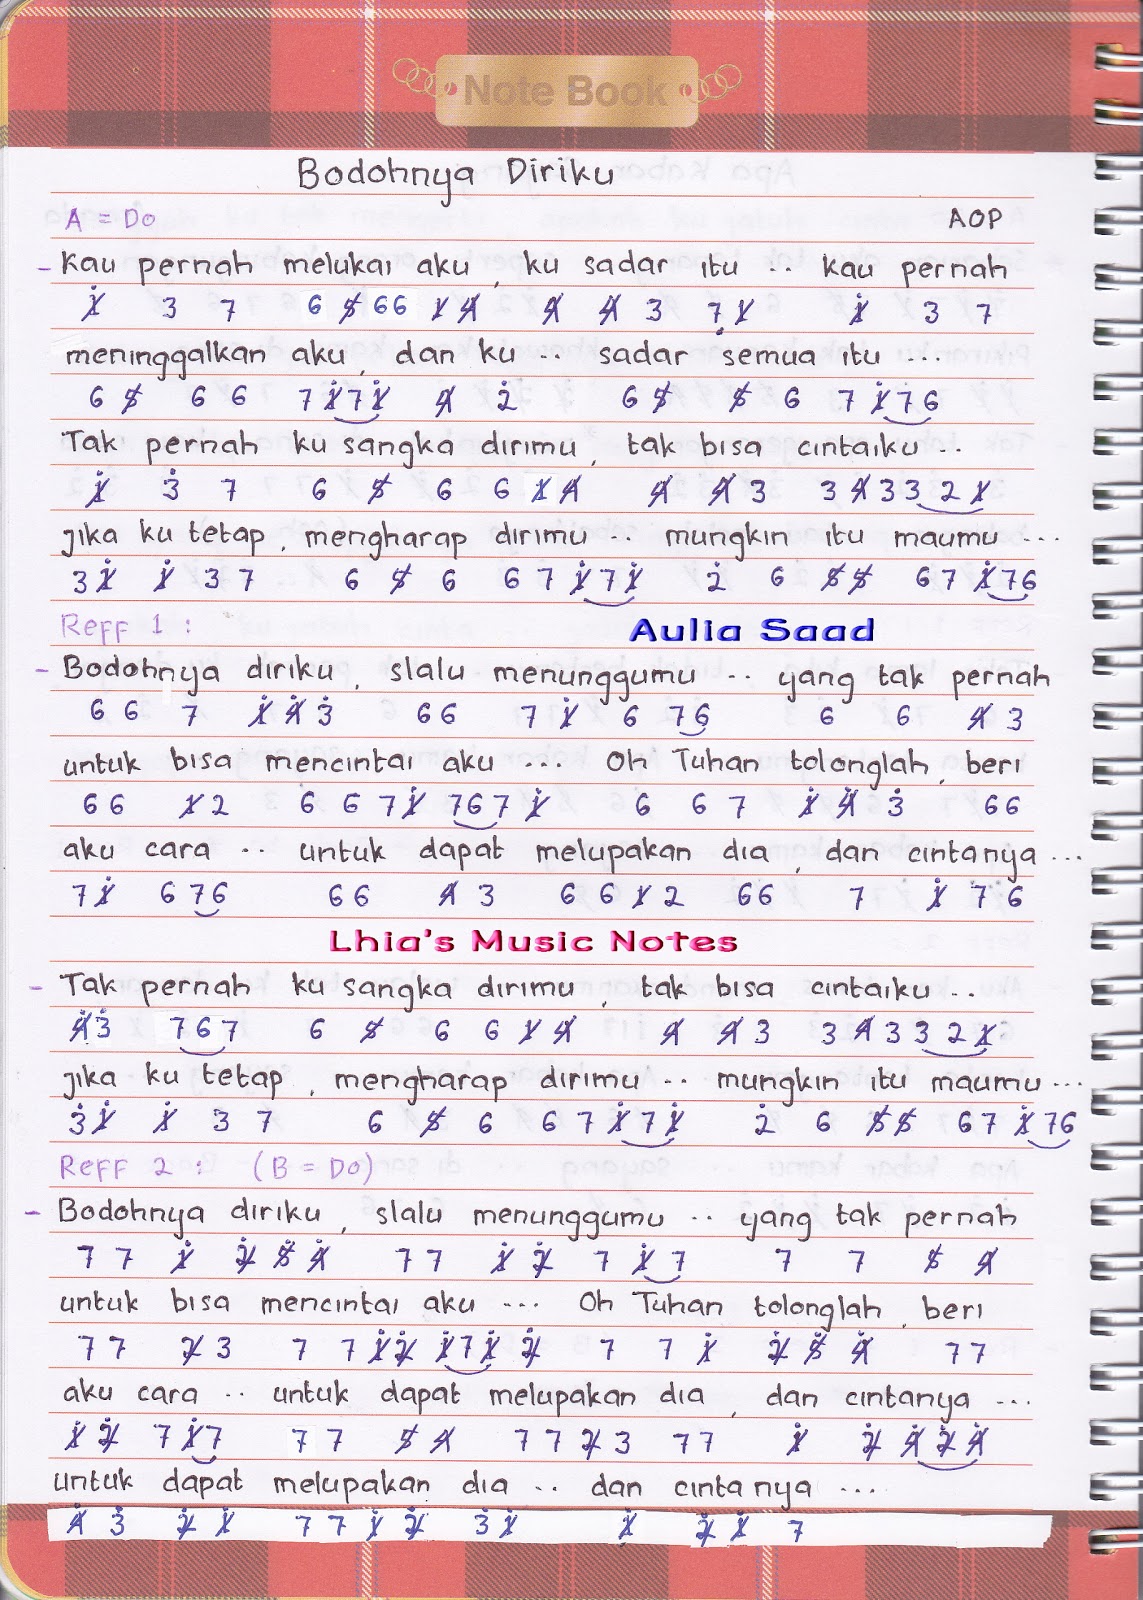 Note Book
Bodohnya Diriku
A = Do AOP
- Kau pernah melukai aku, ku sadar itu .. kau pernah
1 3 7 6 5 6 6 1 4 4 4 3 7 1 1 3 7
meninggalkan aku, dan ku .. sadar semua itu ...
6 5 6 6 7 1 7 1 4 2 6 5 5 6 7 1 7 6
Tak pernah ku sangka dirimu, tak bisa cintaiku ..
1 3 7 6 5 6 6 1 4 4 4 3 3 4 3 3 2 1
jika ku tetap, mengharap dirimu .. mungkin itu maumu ...
3 1 1 3 7 6 5 6 6 7 1 7 1 2 6 5 5 6 7 1 7 6
Reff 1 : Aulia Saad
- Bodohnya diriku, slalu menunggumu .. yang tak pernah
6 6 7 1 4 3 6 6 7 1 6 7 6 6 6 4 3
untuk bisa mencintai aku ... Oh Tuhan tolonglah, beri
6 6 1 2 6 6 7 1 7 6 7 1 6 6 7 1 4 3 6 6
aku cara .. untuk dapat melupakan dia, dan cintanya ...
7 1 6 7 6 6 6 4 3 6 6 1 2 6 6 7 1 7 6
Lhia's Music Notes
- Tak pernah ku sangka dirimu, tak bisa cintaiku ..
4 3 7 6 7 6 5 6 6 1 4 4 4 3 3 4 3 3 2 1
jika ku tetap, mengharap dirimu .. mungkin itu maumu ...
3 1 1 3 7 6 5 6 6 7 1 7 1 2 6 5 5 6 7 1 7 6
Reff 2 : (B = Do)
- Bodohnya diriku, slalu menunggumu .. yang tak pernah
7 7 1 2 5 4 7 7 1 2 7 1 7 7 7 5 4
untuk bisa mencintai aku ... Oh Tuhan tolonglah, beri
7 7 2 3 7 7 1 2 1 7 1 2 7 7 1 2 5 4 7 7
aku cara .. untuk dapat melupakan dia, dan cintanya ...
1 2 7 1 7 7 7 5 4 7 7 2 3 7 7 1 2 4 2 4
untuk dapat melupakan dia .. dan cintanya ...
4 3 2 1 7 7 1 2 3 1 1 2 1 7